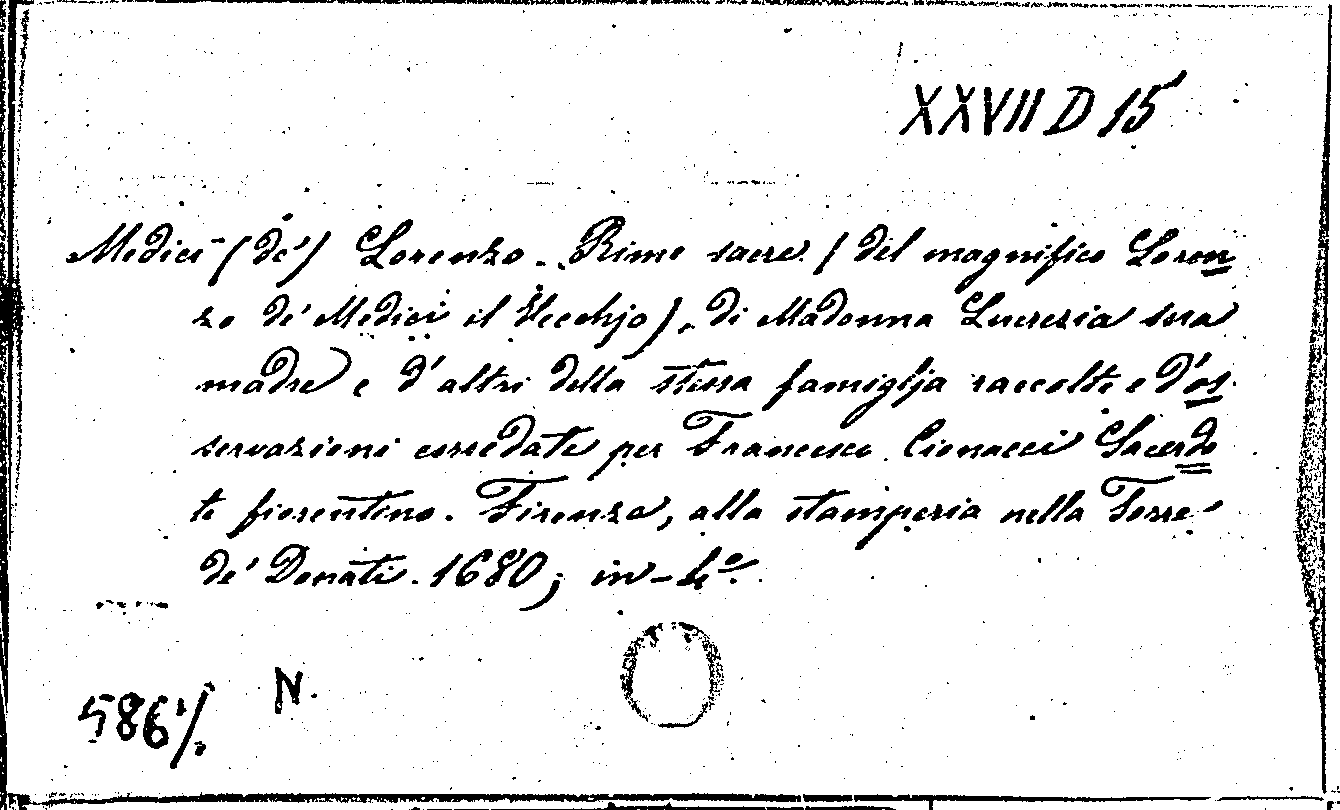 XXVII D 15
Medici (de') Lorenzo. Rime sacre (del magnifico Loren
zo de' Medici il Vecchjo), di Madonna Lucrezia sua
madre e d'altri della stessa famiglja raccolte e d'os
servazioni corredate per Francesco Cionacci Sacerdo
te fiorentino. Firenze, alla stamperia nella Torre
de' Donati. 1680; in-4º.
586
N.